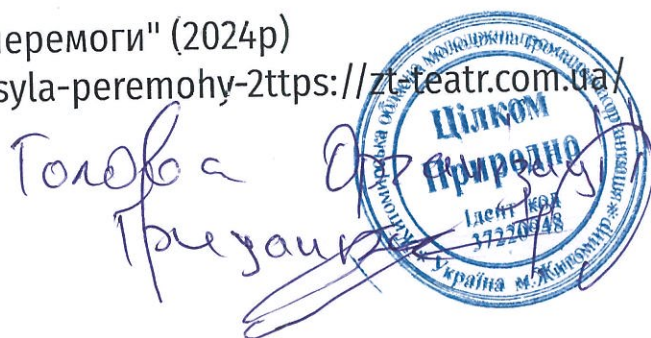 перемоги" (2024р)
syla-peremohy-2ttps://zt-teatr.com.ua/
Голова Організації
Житомирська обласна молодіжна громадська організація
Цілком
Природно
Ідент код
37220048
* Україна м.Житомир *